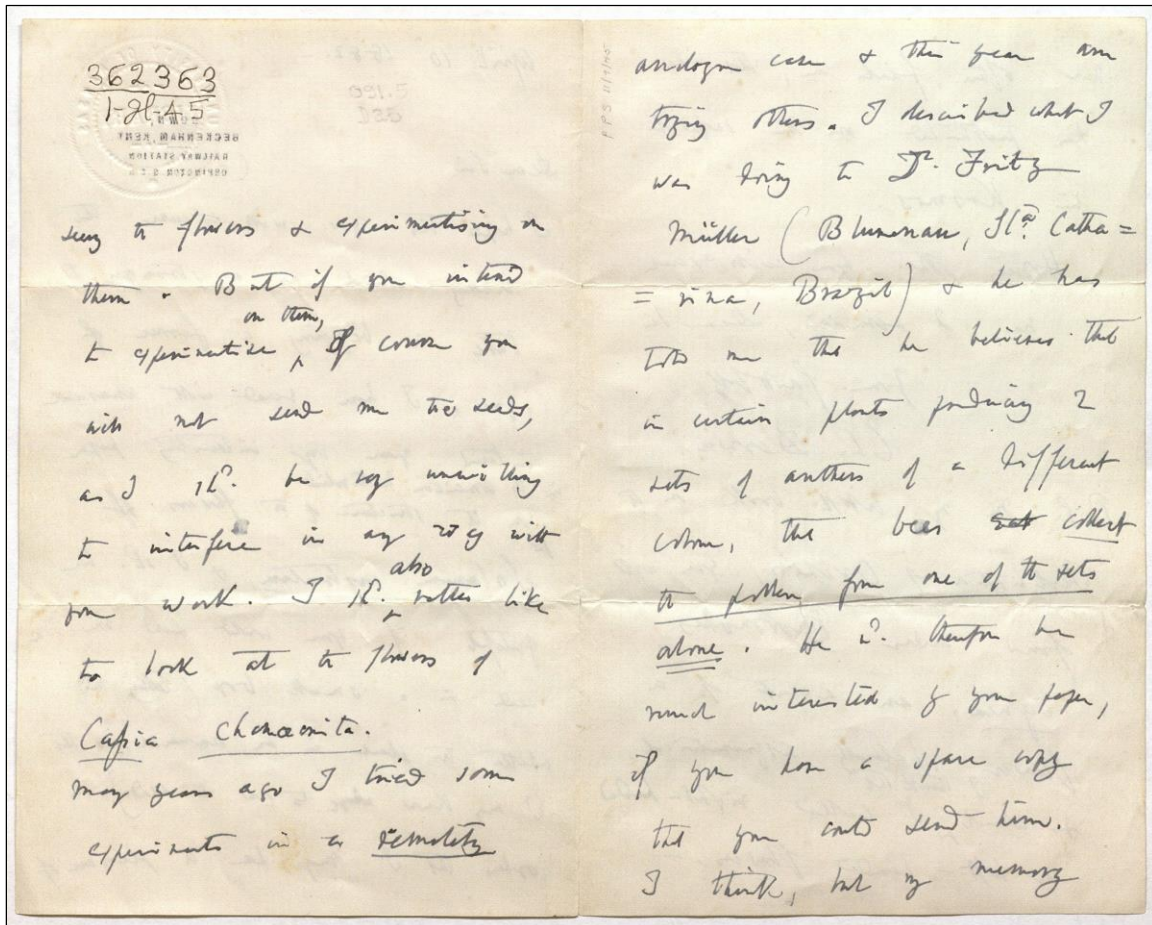 362363
1-21-45
seeing the flowers & experimentising on
them. But if you intend
on them,
to experimentise ‸ of course you
will not send me the seeds,
as I shd. be very unwilling
to interfere in any way with
also
your work. I shd. ‸ rather like
to look at the flowers of
Cassia Chamæcrista.
many years ago I tried some
experiments in a remotely
analogous case & this year am
trying others. I described what I
was doing to Dr. Fritz
Müller (Blumenau, Sta. Catha=
=rina, Brazil) & he has
told me that he believes that
in certain plants producing 2
sets of anthers of a different
colour, the bees collect
the pollen from one of the sets
alone. He wd. therefore be
much interested by your paper,
if you have a spare copy
that you could send him.
I think, but my memory